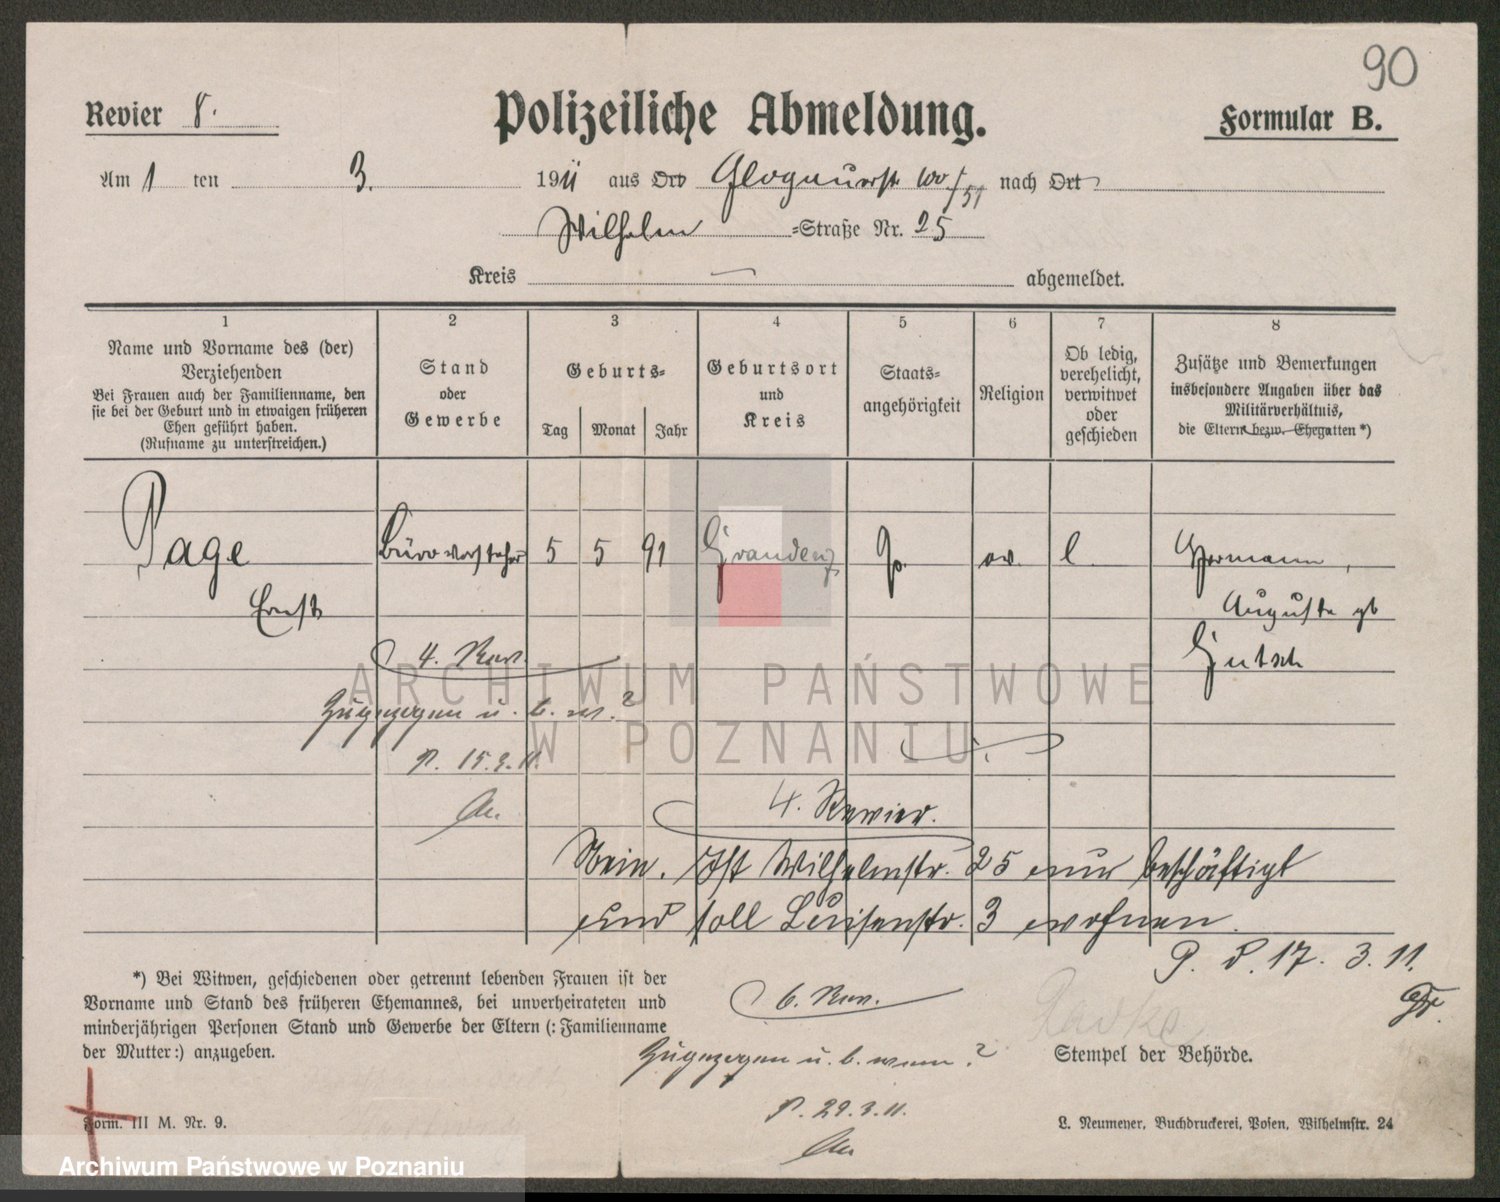 90
Revier 8.
Polizeiliche Abmeldung.
Formular B.
Am 1 ten 3. 1911 aus Ort Glogauerstr. 100/51 nach Ort
Wilhelm =Straße Nr. 25
Kreis — abgemeldet.
1 2 3 4 5 6 7 8
Name und Vorname des (der)
Verziehenden
Bei Frauen auch der Familienname, den
sie bei der Geburt und in etwaigen früheren
Ehen geführt haben.
(Rufname zu unterstreichen.)
Stand
oder
Gewerbe
Geburts=
Tag Monat Jahr
Geburtsort
und
Kreis
Staats=
angehörigkeit
Religion
Ob ledig,
verehelicht,
verwitwet
oder
geschieden
Zusätze und Bemerkungen
insbesondere Angaben über das
Militärverhältnis,
die Eltern bezw. Ehegatten *)
Page Bürovorsteher 5 5 91 Graudenz P. ev. l. Hermann,
Ernst Auguste gb
Gutsch
4. Rev.
Zugezogen u. b. w.?
P. 15.3.11.
4. Revier.
Nein. Ist Wilhelmstr. 25 nur beschäftigt
und soll Luisenstr. 3 wohnen.
P. d. 17. 3. 11.
6. Rev.
Zugezogen u. b. wem?
P. 29.3.11.
*) Bei Witwen, geschiedenen oder getrennt lebenden Frauen ist der
Vorname und Stand des früheren Ehemannes, bei unverheirateten und
minderjährigen Personen Stand und Gewerbe der Eltern (: Familienname
der Mutter:) anzugeben.
Stempel der Behörde.
Form. III M. Nr. 9.
L. Neumeyer, Buchdruckerei, Posen, Wilhelmstr. 24
ARCHIWUM PAŃSTWOWE
W POZNANIU
Archiwum Państwowe w Poznaniu